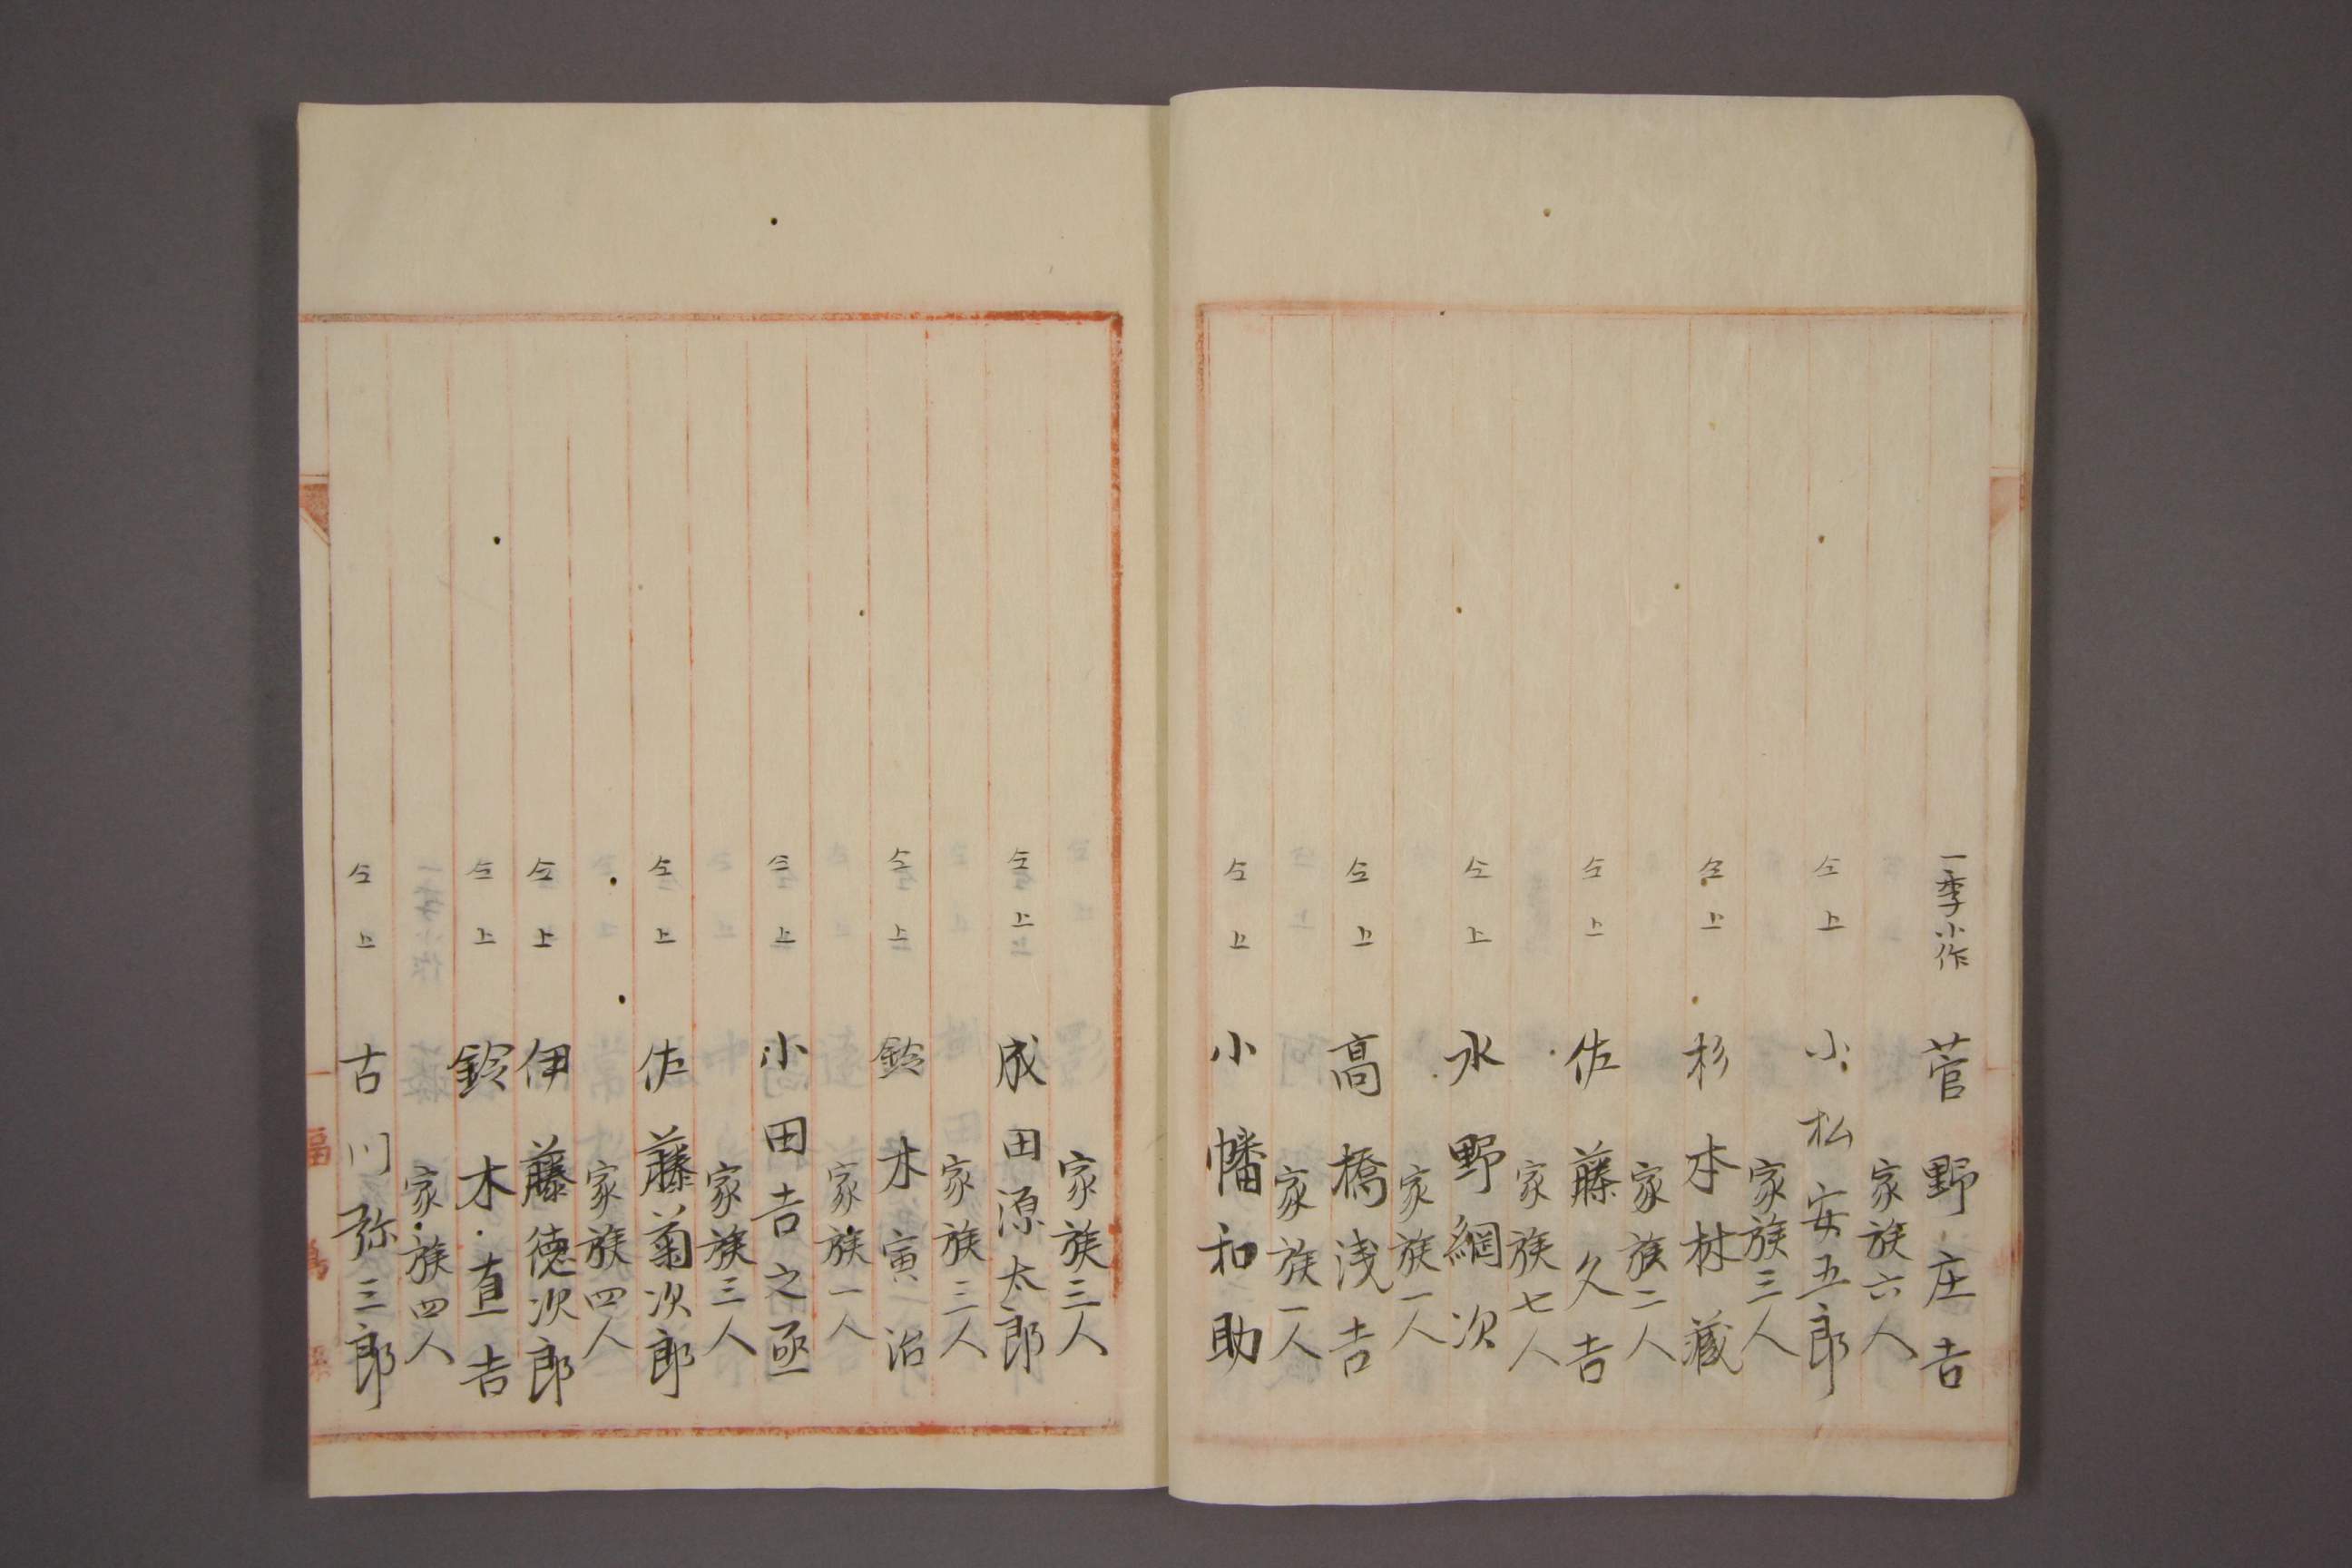 一季小作 菅野庄吉
家族六人
仝上 小松安五郎
家族三人
仝上 杉本林蔵
家族二人
仝上 佐藤久吉
家族七人
仝上 水野綱次
家族一人
仝上 高橋浅吉
家族一人
仝上 小幡和助
家族三人
仝上 成田源太郎
家族三人
仝上 鈴木寅治
家族一人
仝上 小田吉之丞
家族三人
仝上 佐藤菊次郎
家族四人
仝上 伊藤徳次郎
仝上 鈴木直吉
家族四人
仝上 古川弥三郎
福島縣